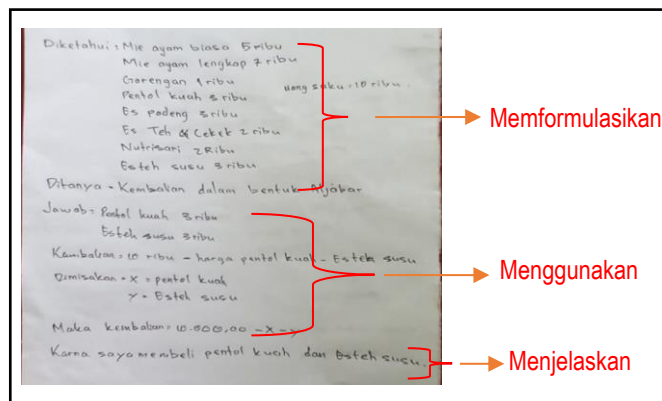 Diketahui : Mie ayam biasa 5 ribu
Mie ayam lengkap 7 ribu
Gorengan 1 ribu
uang saku = 10 ribu.
Pentol kuah 3 ribu
Es podeng 3 ribu
Es Teh & Cekek 2 ribu
Nutrisari 2 Ribu
Esteh susu 3 ribu
Memformulasikan
Ditanya = Kembalian dalam bentuk Aljabar
Jawab = Pentol kuah 3 ribu
Esteh susu 3 ribu
Kembalian = 10 ribu - harga pentol kuah - Esteh susu
Dimisalkan = x = pentol kuah
y = Esteh susu
Menggunakan
Maka kembalian = 10.000,00 - x - y
Karna saya membeli pentol kuah dan Esteh susu.
Menjelaskan